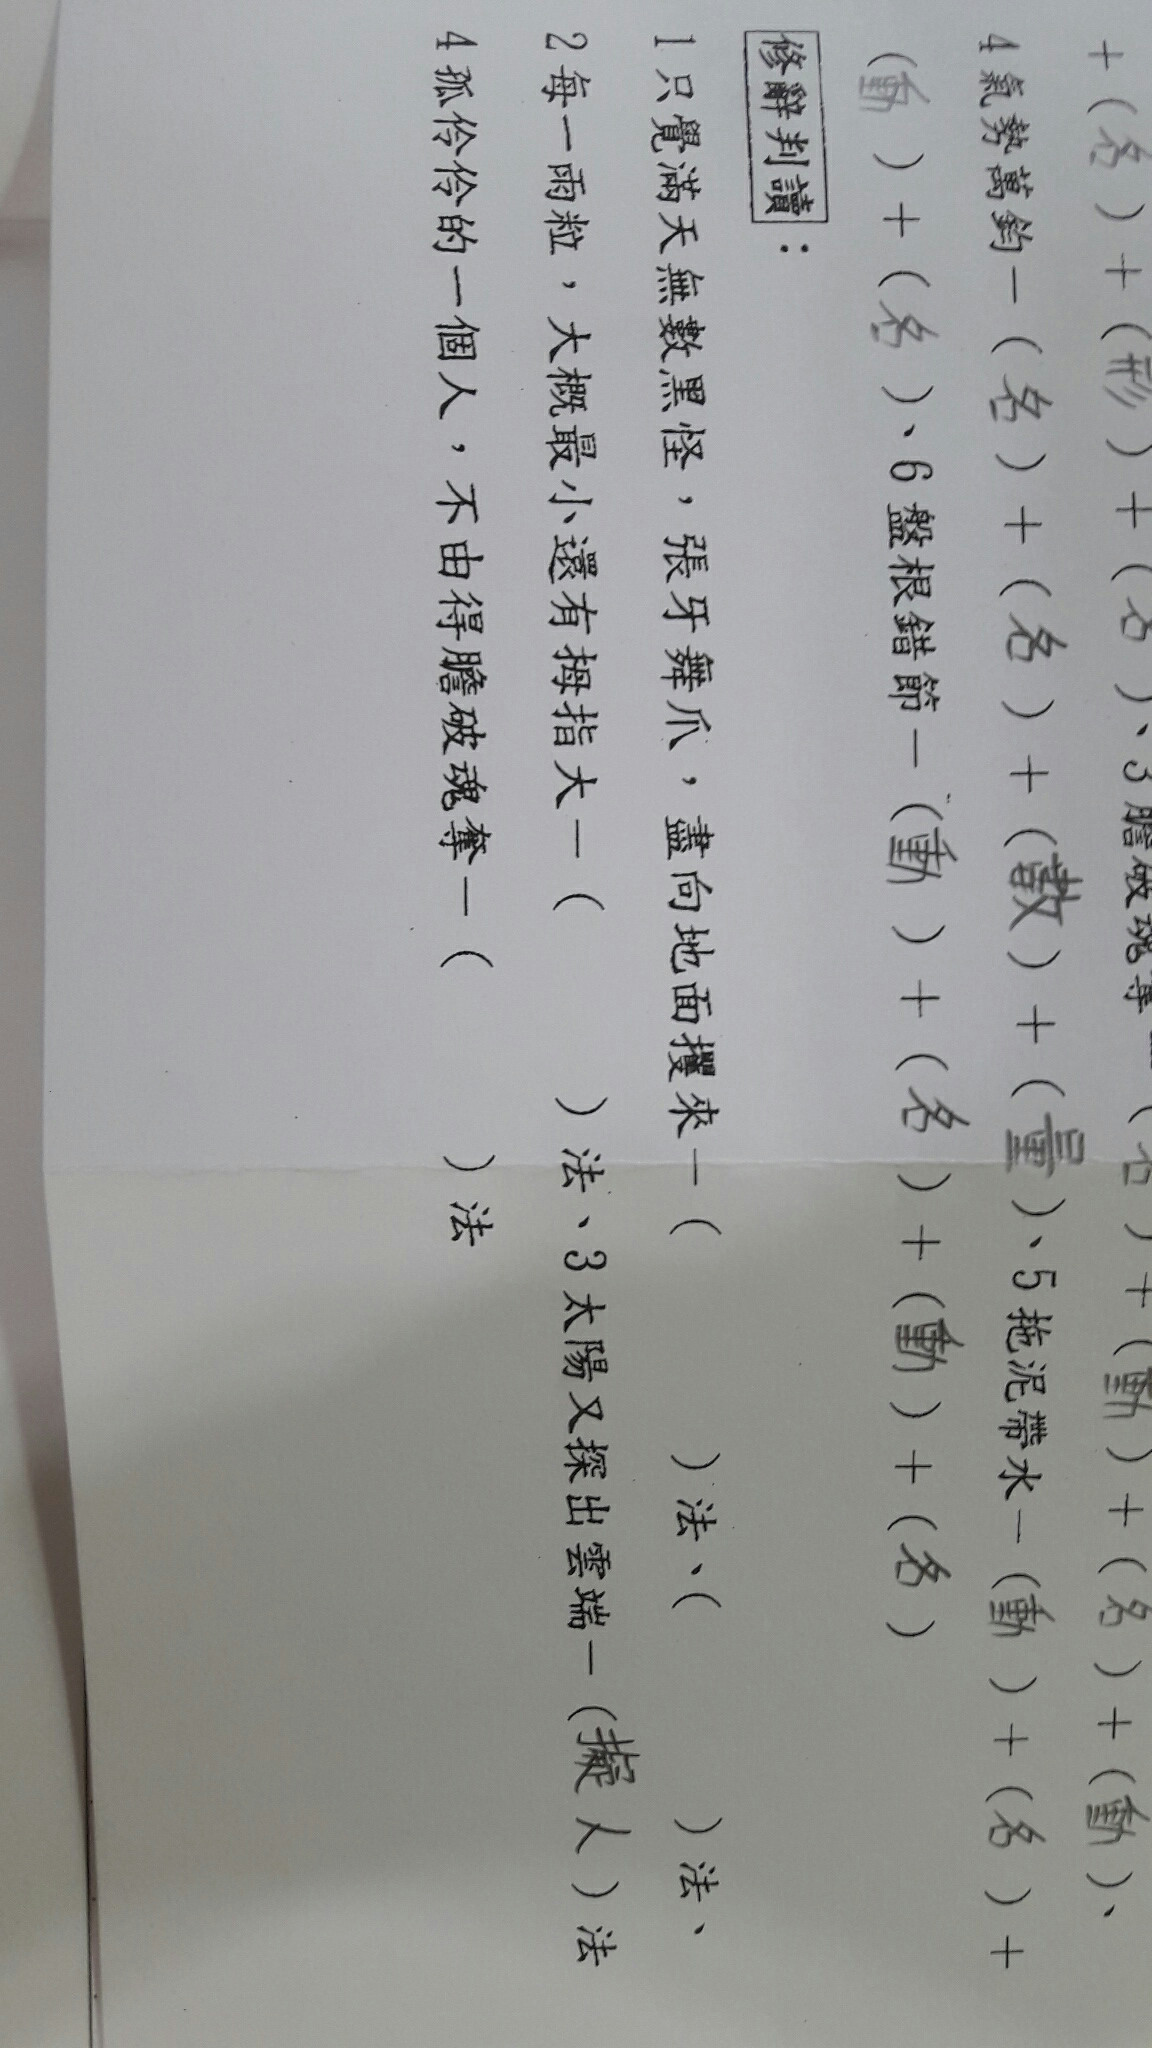 +(名)+(形)+(名)、3膽破魂奪—(名)+(動)+(名)+(動)、
4氣勢萬鈞—(名)+(名)+(數)+(量)、5拖泥帶水—(動)+(名)+
(動)+(名)、6盤根錯節—(動)+(名)+(動)+(名)
修辭判讀：
1只覺滿天無數黑怪，張牙舞爪，盡向地面攫來—( )法、( )法、
2每一雨粒，大概最小還有拇指大—( )法、3太陽又探出雲端—(擬人)法
4孤伶伶的一個人，不由得膽破魂奪—( )法